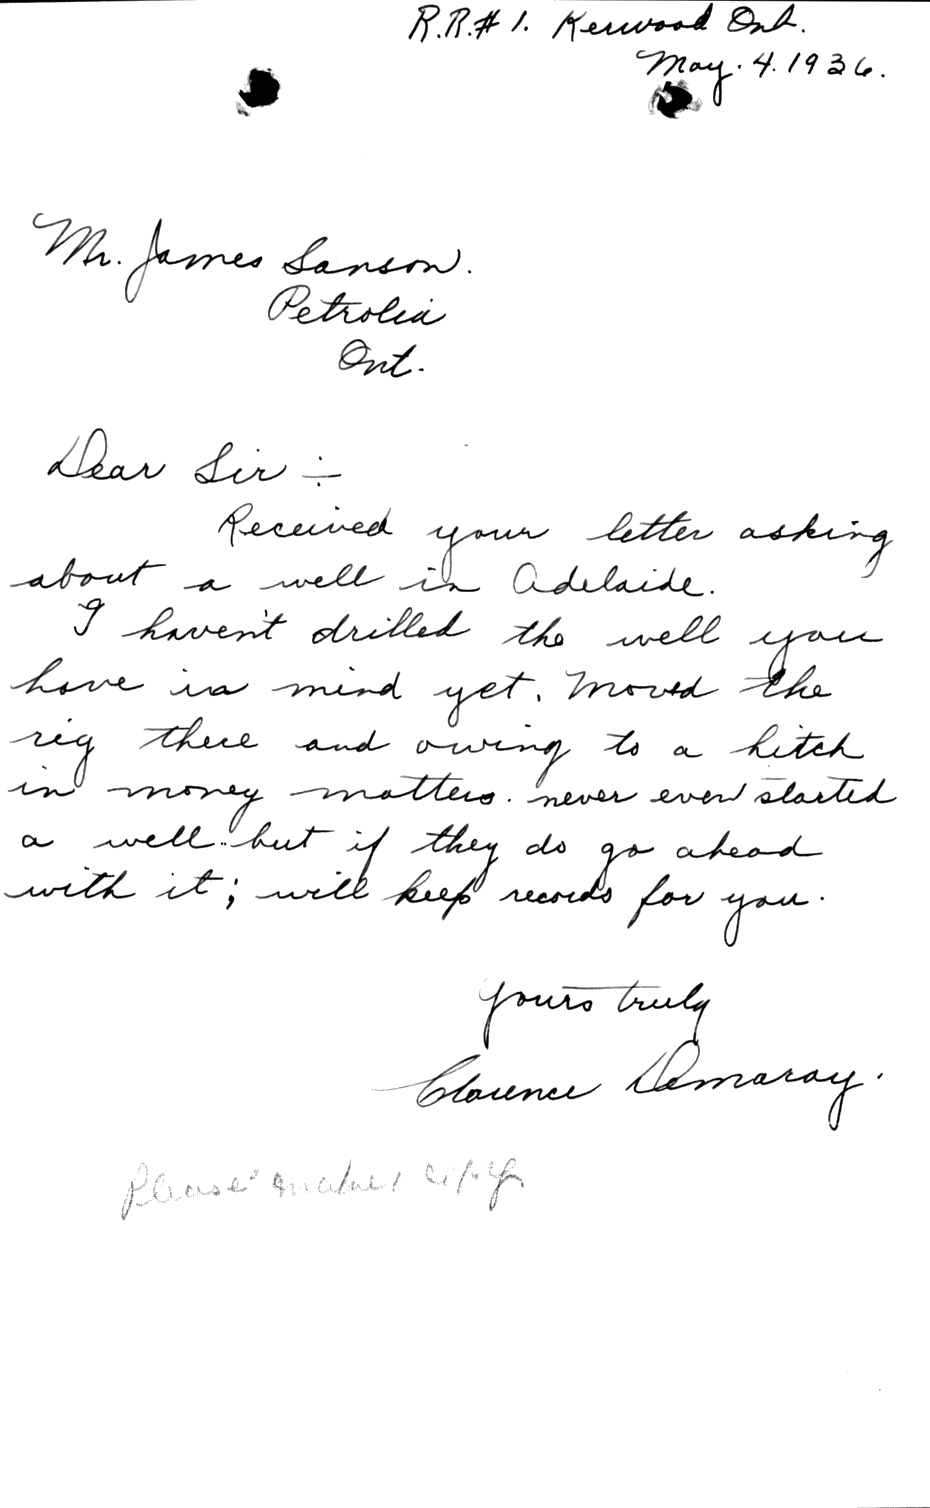 R.R.#1. Kerwood Ont.
May. 4. 1936.
Mr. James Sanson.
Petrolia
Ont.
Dear Sir :-
Received your letter asking
about a well in Adelaide.
I haven't drilled the well you
have in mind yet. Moved the
rig there and owing to a hitch
in money matters. never even started
a well.. but if they do go ahead
with it; will keep records for you.
Yours truly
Clarence Demaray.
Please make copy